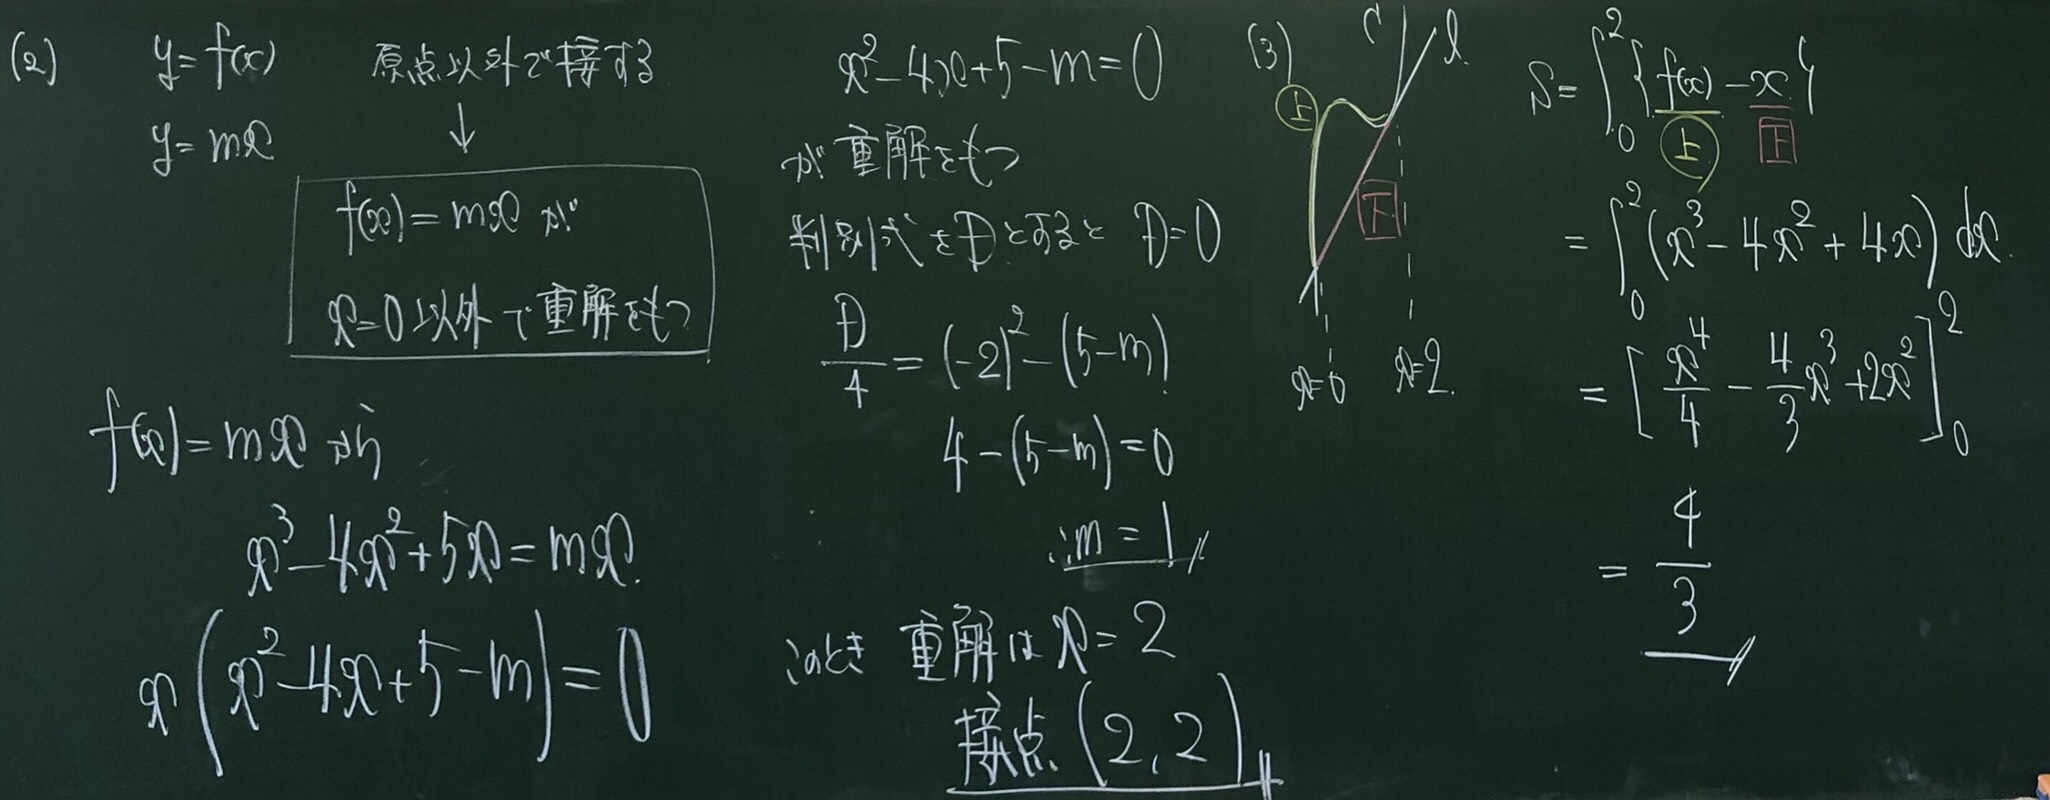 (2)
y=f(x) 原点以外で接する
y=mx ↓
f(x)=mxが
x=0以外で重解をもつ
f(x)=mxから
x³-4x²+5x=mx.
x(x²-4x+5-m)=0
x²-4x+5-m=0
が重解をもつ
判別式をDとするとD=0
D/4=(-2)²-(5-m)
4-(5-m)=0
∴m=1
このとき 重解はx=2
接点(2,2)
(3)
C l
上
下
x=0 x=2
S=∫₀²{f(x)-x}
上 下
=∫₀²(x³-4x²+4x)dx.
=[x⁴/4-4/3x³+2x²]₀²
=4/3